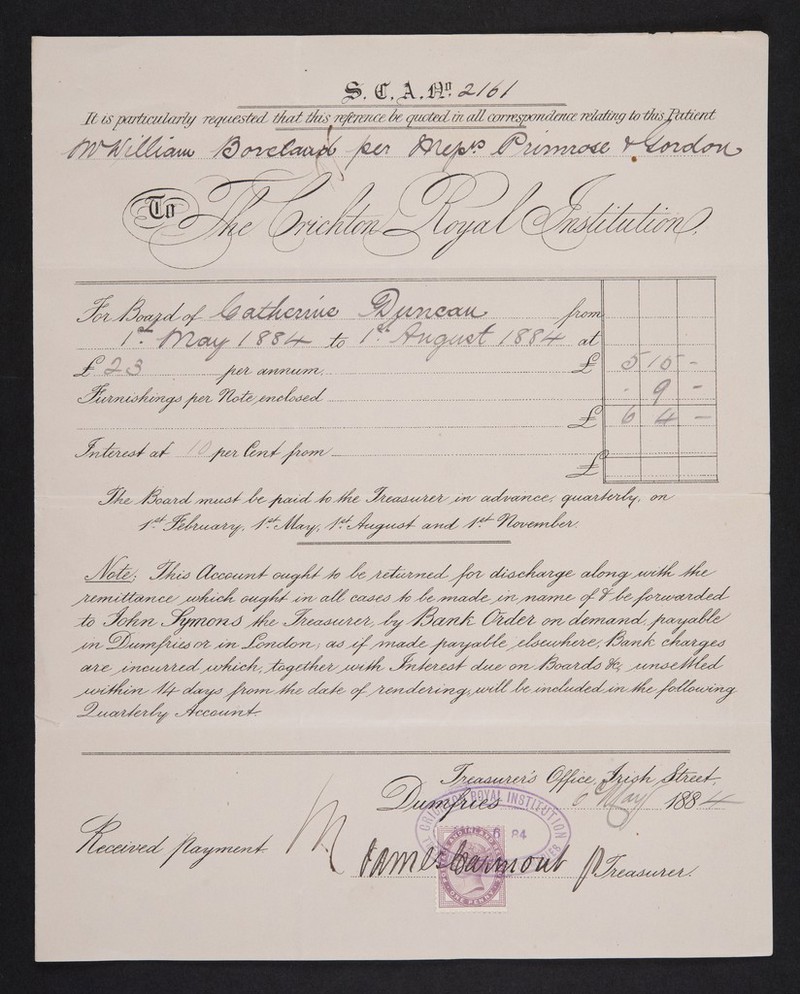 S. C. A. No. 2161
It is particularly requested that this reference be quoted in all correspondence relating to this Patient
Mr William Boreland per Messrs Primrose & Gordon
To The Crichton Royal Institution,
For Board of Catherine Duncan from
1st May 1884 to 1st August 1884 at
£ 23 per annum, £ 5 15 -
Furnishings per Note enclosed - 9 -
£ 6 4 -
Interest at 10 per Cent from
£
The Board must be paid to the Treasurer in advance, quarterly, on
1st February, 1st May, 1st August and 1st November.
Note; This Account ought to be returned for discharge along with the
remittance which ought in all cases to be made in name of & be forwarded
to John Symons the Treasurer, by Bank Order on demand, payable
in Dumfries or in London; as if made payable elsewhere, Bank charges
are incurred which, together with Interest due on Boards &c, unsettled
within 14 days from the date of rendering, will be included in the following
Quarterly Account.
Treasurer's Office, Irish Street,
Dumfries 6 May 1884
ROYAL INSTITUTION
6 84
Received Payment
James Carmont p Treasurer.
ONE PENNY